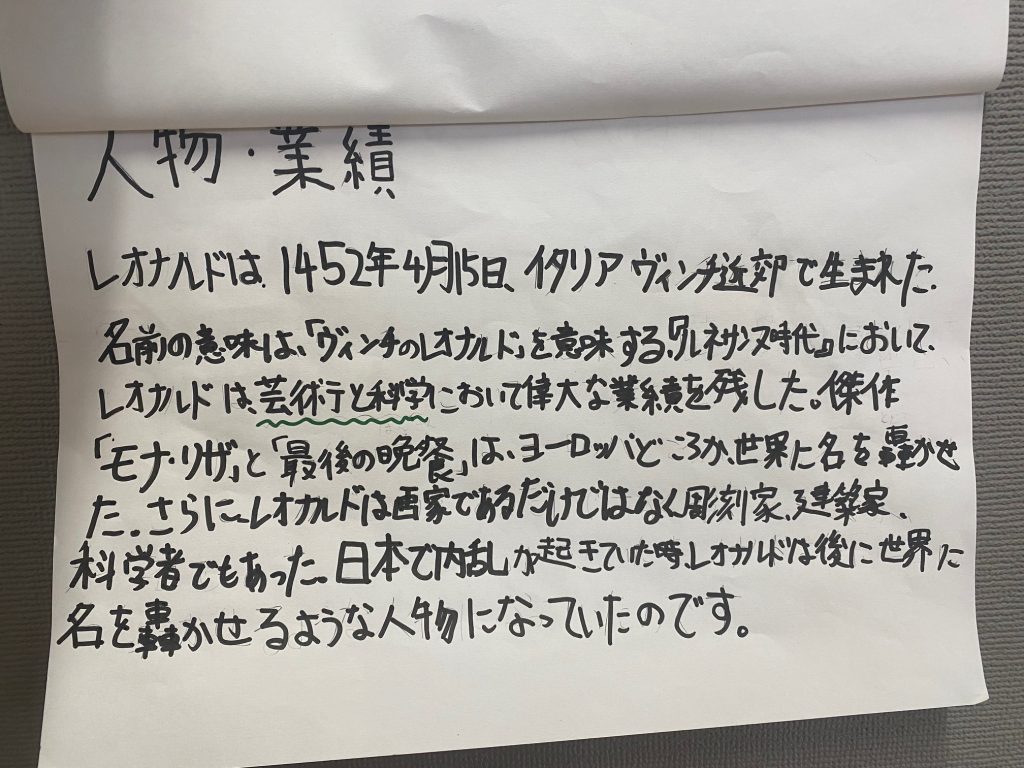 人物・業績
レオナルドは、1452年4月15日、イタリア ヴィンチ近郊で生まれた。
名前の意味は、「ヴィンチのレオナルド」を意味する。『ルネサンス時代』において、
レオナルドは、芸術行と科学において偉大な業績を残した。傑作
「モナ・リザ」と「最後の晩餐」は、ヨーロッパどころか、世界に名を轟かせ
た。さらに、レオナルドは画家であるだけではなく彫刻家、建築家、
科学者でもあった。日本で内乱が起きていた時、レオナルドは後に世界に
名を轟かせるような人物になっていたのです。